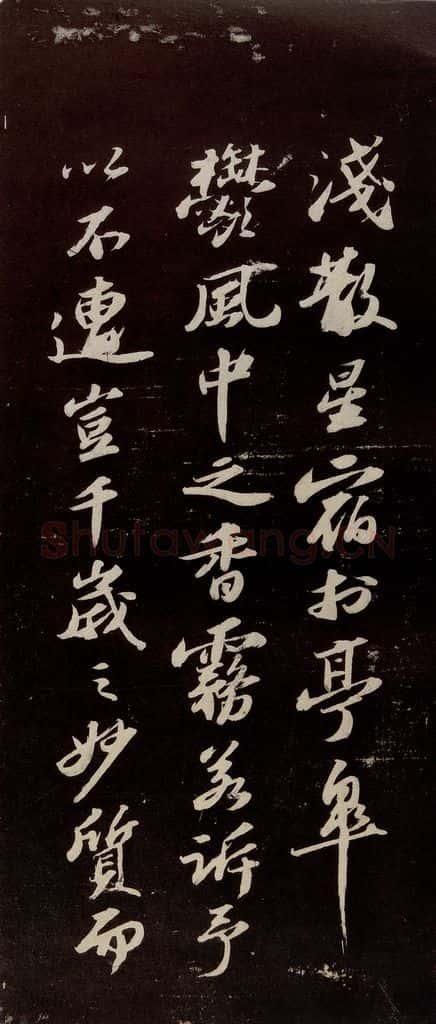 淺散星宿於亭皋
鬱風中之香霧若訴予
以不遭豈千歲之妙質而
Shufawang.CN